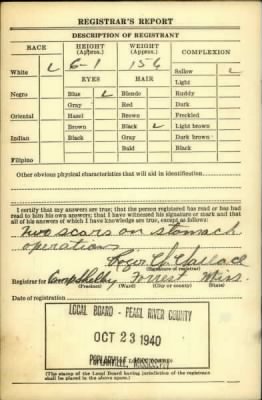 REGISTRAR'S REPORT
DESCRIPTION OF REGISTRANT
RACE
HEIGHT
(Approx.)
WEIGHT
(Approx.)
COMPLEXION
White
6-1
156
Sallow
EYES
HAIR
Light
Negro
Blue
Blonde
Ruddy
Gray
Red
Dark
Oriental
Hazel
Brown
Freckled
Brown
Black
Light brown
Indian
Black
Gray
Dark brown
Bald
Black
Filipino
Other obvious physical characteristics that will aid in identification
I certify that my answers are true; that the person registered has read or has had
read to him his own answers; that I have witnessed his signature or mark and that
all of his answers of which I have knowledge are true, except as follows:
Two scars on stomach
operations
Wallace
(Signature of registrar)
Registrar for Camp Shelby Forrest Miss.
(Precinct) (Ward) (City or county) (State)
Date of registration
LOCAL BOARD - PEARL RIVER COUNTY
OCT 23 1940
POPLARVILLE, MISSISSIPPI
(The stamp of the Local Board having jurisdiction of the registrant shall be
placed in the above space.)